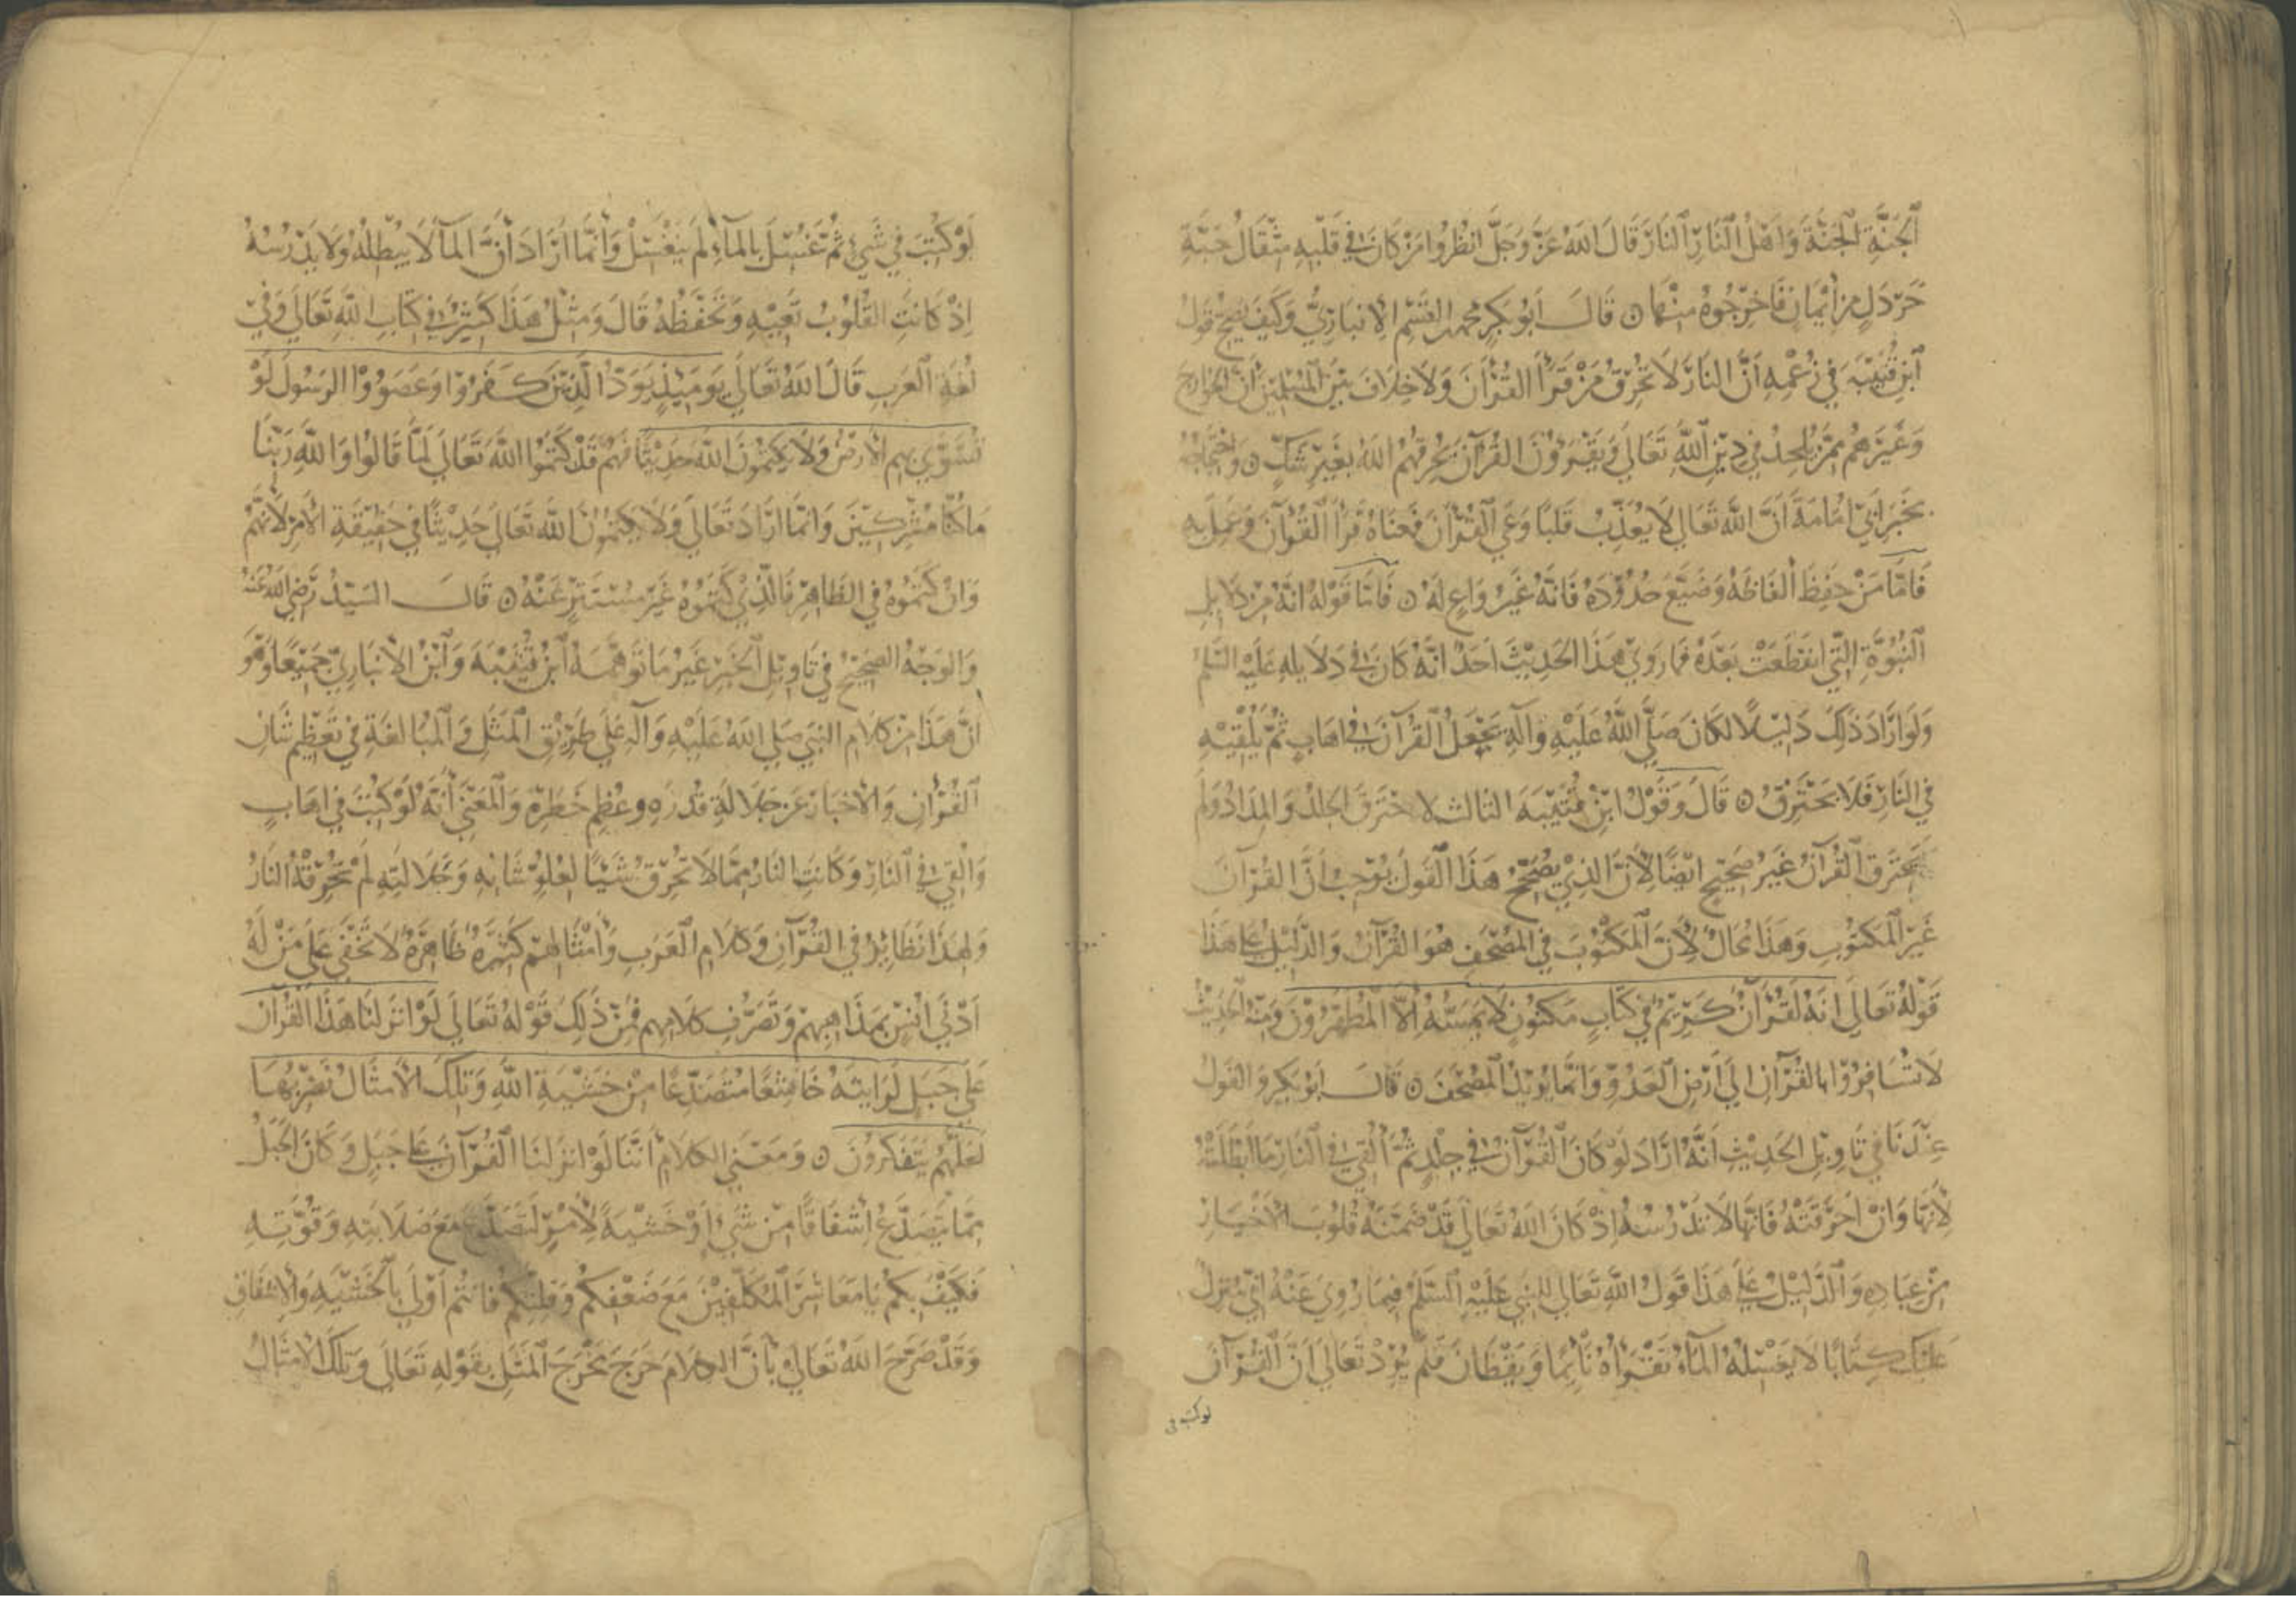 الْجَنَّةِ الْجَنَّةَ وَاَهْلُ النَّارِ النَّارَ قَالَ اللهُ عَزَّ وَجَلَّ انْظُرُوا مَنْ كَانَ فِي قَلْبِهِ مِثْقَالُ حَبَّةِ
خَرْدَلٍ مِنْ اِيْمَانٍ فَاَخْرِجُوهُ مِنْهَا ۞ قَالَ اَبُو بَكْرٍ مُحَمَّد القٰسِم الاَنْبَارِيُّ وَكَيْفَ يَصِحُّ قَوْلُ
ابْنِ قُتَيْبَةَ فِي زُعْمِهِ اَنَّ النَّارَ لَا تُحْرِقُ مَنْ قَرَأَ الْقُرْأَنَ وَلَا خِلَافَ بَيْنَ الْمُسْلِمِيْنَ اَنَّ الْخَوَارِجَ
وَغَيْرَهُمْ مِمَّنْ يُلْحِدُ فِي دِيْنِ اللهِ تَعَالَي وَيَقْرَؤُنَ الْقُرْآنَ يُحْرِقُهُمُ اللهُ بِغَيْرِ شَكٍّ ۞ وَاحْتِجَاجُهُ
بِخَبَرِ اَبِي اُمَامَةَ اَنَّ اللهَ تَعَالَي لَا يُعَذِّبُ قَلْبًا وَعَي الْقُرْآنَ فَمَعْنَاهُ قَرَأَ الْقُرْآنَ وَعَمِلَ بِهِ
فَاَمَّا مَنْ حَفِظَ اَلْفَاظَهُ وَضَيَّعَ حُدُوْدَهُ فَاِنَّهُ غَيْرُ وَاعٍ لَهُ ۞ فَاَمَّا قَوْلُهُ اِنَّهُ مِنْ دَلَايِلِ
النُّبُوَّةِ الَّتِي انْقَطَعَتْ بَعْدَهُ فَمَا رَوَيَ هَذَا الْحَدِيْثَ اَحَدٌ اَنَّهُ كَانَ فِي دَلَايِلِهِ عَلَيْهِ السَّلٰمُ
وَلَوْ اَرَادَ ذَلِكَ دَلِيْلًا لَكَانَ صَلَّي اللهُ عَلَيْهِ وَآلِهِ يَجْعَلُ الْقُرْآنَ فِي اِهَابٍ ثُمَّ يُلْقِيْهِ
فِي النَّارِ فَلَا يَحْتَرِقُ ۞ قَالَ وَقَوْلُ ابْنِ قُتَيْبَةَ الثَّالِث لا حْتَرَقَ الْجِلْدُ وَالْمِدَادُ وَلَمْ
يَحْتَرِقِ الْقُرْآنُ غَيْرُ صَحِيْحٍ اَيْضًا لِأَنَّ الَّذِيْ يُصَحِّحُ هَذَا الْقَوْلَ يُوْجِبُ اَنَّ الْقُرْآنَ
غَيْرُ الْمَكْتُوْبِ وَهَذَا مُحَالٌ لِأَنَّ الْمَكْتُوْبَ فِي الْمُصْحَفِ هُوَ الْقُرْآنُ وَالدَّلِيْلُ عَلَي هَذَا
قَوْلُهُ تَعَالَي اِنَّهُ لَقُرْآنٌ كَرِيْمٌ فِي كِتَابٍ مَكْنُونٍ لَا يَمَسُّهُ اِلَّا الْمُطَهَّرُوْنَ وَمِنْهُ الْحَدِيْثُ
لَا تُسَافِرُوْا بِالْقُرْآنِ اِلَي اَرْضِ الْعَدُوِّ وَاِنَّمَا يُرِيْدُ الْمُصْحَفَ ۞ قَالَ اَبُوْ بَكْرٍ وَالْقَوْلُ
عِنْدَنَا فِي تَاوِيْلِ الْحَدِيْثِ اَنَّهُ اَرَادَ لَوْ كَانَ الْقُرْآنُ فِي جِلْدٍ ثُمَّ اُلْقِيَ فِي النَّارِ مَا اَبْطَلَتْهُ
لِاَنَّهَا وَاِنْ اَحْرَقَتْهُ فَاِنَّهَا لَا تَدْرُسُهُ اِذْ كَانَ اللهُ تَعَالَي قَدْ ضَمَّنَهُ قُلُوْبَ الْاَخْيَارِ
مِنْ عِبَادِهِ وَالدَّلِيْلُ عَلَي هَذَا قَوْلُ اللهِ تَعَالَي لِلنَّبِي عَلَيْهِ السَّلٰمُ فِيمَا رُوِيَ عَنْهُ اِنِّي مُنَزِّلٌ
عَلَيْكَ كِتَابًا لَا يَغْسِلُهُ الْمَآءُ تَقْرَأُهُ نَائِمًا وَيَقْظَانَ فَلَمْ يُرِدْ تَعَالَي اَنَّ الْقُرْآنَ
لو كتب في
لَوْ كُتِبَ فِي شَيْءٍ ثُمَّ غُسِلَ بِالْمَآءِ لَمْ يَنْغَسِلْ وَاِنَّمَا اَرَادَ اَنَّ الْمَآ لَا يُبْطِلُهُ وَلَا يَدْرُسُهُ
اِذْ كَانَتِ الْقُلُوْبُ تَعِيْهِ وَتَحْفَظُهُ قَالَ وَمِثْلُ هَذَا كَثِيْرٌ فِي كِتَابِ اللهِ تَعَالَي وَفِي
لُغَةِ الْعَرَبِ قَالَ اللهُ تَعَالَي يَوْمَئِذٍ يَوَدُّ الَّذِيْنَ كَفَرُوْا وَعَصَوُا الرَسُولَ لَوْ
تُسَوَّي بِهِمِ الْاَرْضُ وَلَا يَكْتُمُونَ اللهَ حَدِيْثًا فَهُمْ قَدْ كَتَمُوا اللهَ تَعَالَي لَمَّا قَالُوا وَاللهِ رَبِّنَا
مَا كُنَّا مُشْرِكِيْنَ وَاِنَّمَا اَرَادَ تَعَالَي وَلَا يَكْتُمُوْنَ اللهَ تَعَالَي حَدِيْثًا فِي حَقِيْقَةِ الْاَمْرِ لِاَنَّهُمْ
وَاِنْ كَتَمُوْهُ فِي الظَّاهِرِ فَالَّذِيْ كَتَمُوْهُ غَيْرُ مُسْتَتِرٍ عَنْهُ ۞ قَالَ السَّيِّدُ رَضِيَ اللهُ عَنْهُ
وَالْوَجْهُ الصَّحِيْحُ فِي تَاوِيْلِ الْخَبَرِ غَيْرُ مَا تَوَهَّمَهُ ابْنُ قُتَيْبَةَ وَابْنُ الْاَنْبَارِيّ جَمِيْعًا وَهُوَ
اَنَّ هَذَا مِنْ كَلَامِ النَّبِي صَلَّي اللهُ عَلَيْهِ وَآلِهِ عَلَي طَرِيْقِ الْمَثَلِ وَالْمُبَالَغَةِ فِي تَعْظِيْمِ شَانِ
الْقُرْآنِ وَالْاِخْبَارِ عَنْ جَلَالَةِ قَدْرِهِ وَعُظْمِ خَطَرِهِ وَالْمَعْنَي أَنَّهُ لَوْ كُتِبَ فِي اِهَابٍ
وَاُلْقِيَ فِي النَّارِ وَكَانَتِ النَّارُ مِمَّا لَا تُحْرِقُ شَيْئًا لِعُلُوِّ شَانِهِ وَجَلَالَتِهِ لَمْ تُحْرِقْهُ النَّارُ
وَلِهَذَا نَظَايِرُ فِي الْقُرْآنِ وَكَلَامِ الْعَرَبِ وَأَمْثَالِهِمْ كَثِيْرَةٌ ظَاهِرَةٌ لَا تَخْفَي عَلَي مَنْ لَهُ
اَدْنَي اُنْسٍ بِمَذَاهِبِهِمْ وَتَصَرُّفِ كَلَامِهِم فَمِنْ ذَلِكَ قَوْلُهُ تَعَالَي لَوْ اَنْزَلْنَا هَذَا الْقُرْآنَ
عَلَي جَبَلٍ لَرَاَيْتَهُ خَاشِعًا مُتَصَدِّعًا مِنْ خَشْيَةِ اللهِ وَتِلْكَ الْاَمْثَالُ نَضْرِبُهَا
لَعَلَّهُمْ يَتَفَكَّرُوْنَ ۞ وَمَعْنَي الْكَلَامِ اَنَّنَا لَوْ اَنْزَلْنَا الْقُرْآنَ عَلَي جَبَلٍ وَكَانَ الْجَبَلُ
مِمَّا يَتَصَدَّعُ اِشْفَاقًا مِنْ شَيْءٍ اَوْ خَشْيَةً لِأَمْرٍ لَتَصَدَّعَ مَعَ صَلَابَتِهِ وَقُوَّتِهِ
فَكَيْفَ بِكُمْ يَا مَعَاشِرَ الْمُكَلَّفِيْنَ مَعَ ضَعْفِكُمْ وَقِلَّتِكُمْ فَاَنْتُمْ اَوْلَي بِالْخَشْيَةِ وَالْاِشْفَاقِ
وَقَدْ صَرَّحَ اللهُ تَعَالَي بِأَنَّ الْكَلَامَ خَرَجَ مَخْرَجَ الْمَثَلِ بِقَوْلِهِ تَعَالَي وَتِلْكَ الْاَمْثَالُ